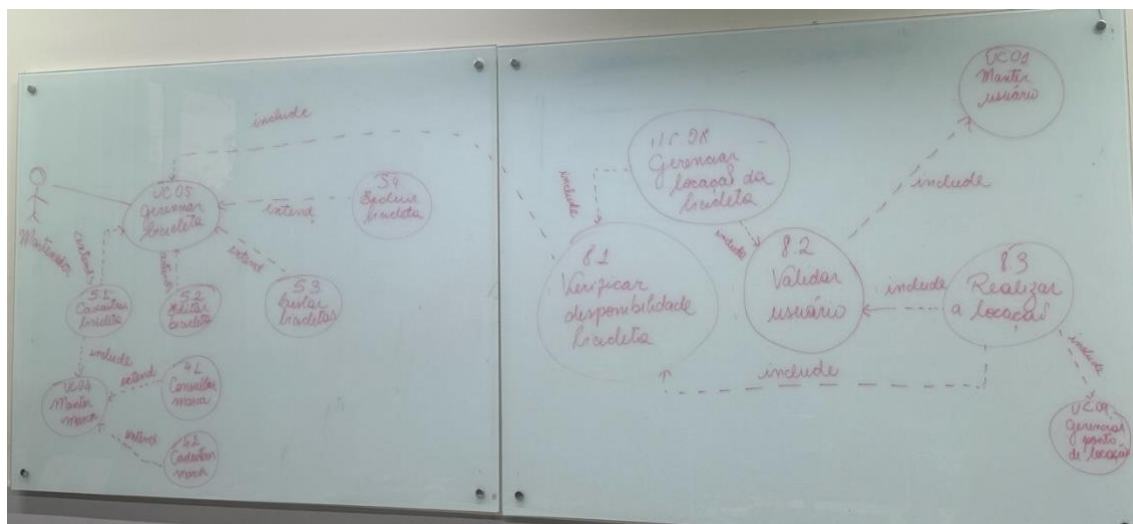 include
Mantenedor
UC05
Gerenciar
bicicleta
extend
5.4
Excluir
bicicleta
extend
5.1
Cadastrar
bicicleta
extend
5.2
Editar
bicicleta
extend
5.3
bicicletas
include
UC04
Manter
marca
extend
4.1
Consultar
marca
extend
4.2
Cadastrar
marca
Gerenciar
locação da
bicicleta
include
include
8.1
Verificar
disponibilidade
bicicleta
8.2
Validar
usuário
include
Manter
usuário
include
8.3
Realizar
a locação
include
include
Gerenciar
ponto
de locação